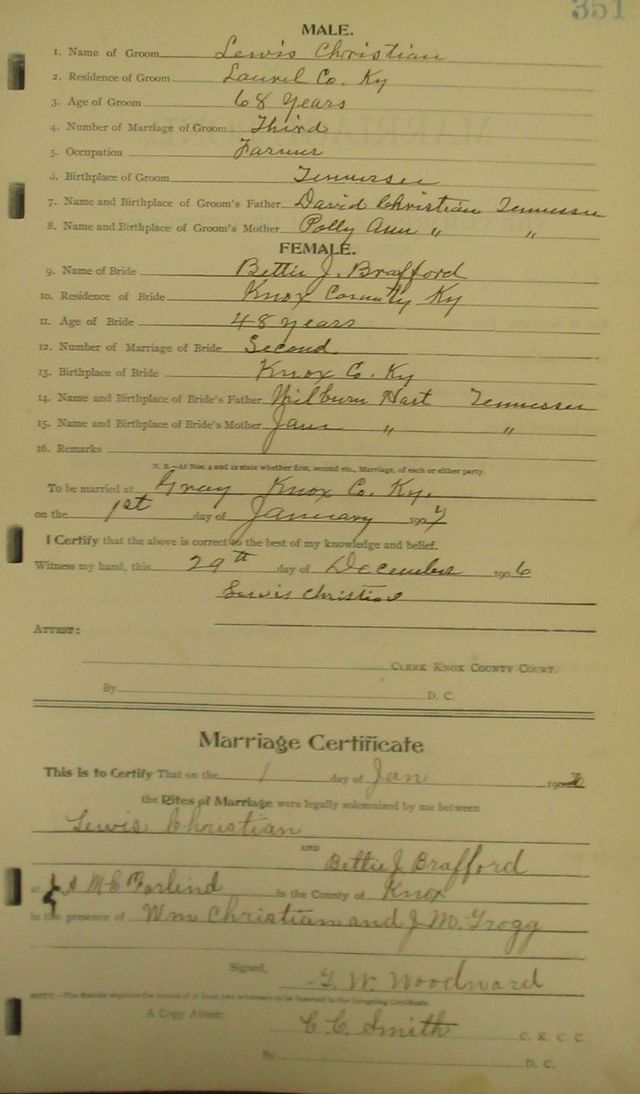 351
MALE.
1. Name of Groom Lewis Christian
2. Residence of Groom Laurel Co. Ky
3. Age of Groom 68 years
4. Number of Marriage of Groom Third
5. Occupation Farmer
6. Birthplace of Groom Tennessee
7. Name and Birthplace of Groom's Father David Christian Tennessee
8. Name and Birthplace of Groom's Mother Polly Ann " "
FEMALE.
9. Name of Bride Bettie J. Brafford
10. Residence of Bride Knox County Ky
11. Age of Bride 48 years
12. Number of Marriage of Bride Second
13. Birthplace of Bride Knox Co. Ky
14. Name and Birthplace of Bride's Father Wilburn Hast Tennessee
15. Name and Birthplace of Bride's Mother Jane " "
16. Remarks
N. B.—At Nos. 4 and 12 state whether first, second etc., Marriage, of each or either party.
To be married at Gray Knox Co. Ky.
on the 1st day of January 1907
I Certify that the above is correct to the best of my knowledge and belief.
Witness my hand, this 29th day of December 1906
Lewis Christian
ATTEST:
CLERK KNOX COUNTY COURT.
By D. C.
Marriage Certificate
This is to Certify That on the 1 day of Jan 190
the Rites of Marriage were legally solemnized by me between
Lewis Christian
AND
Bettie J. Brafford
at McFarlind in the County of Knox
in the presence of Wm Christian and J. M. Grogg
Signed, G. W. Woodward
NOTE.—The Statute requires the names of at least two witnesses to be inserted in the foregoing Certificate.
A Copy Attest: C. C. Smith C. K. C. C.
By D. C.